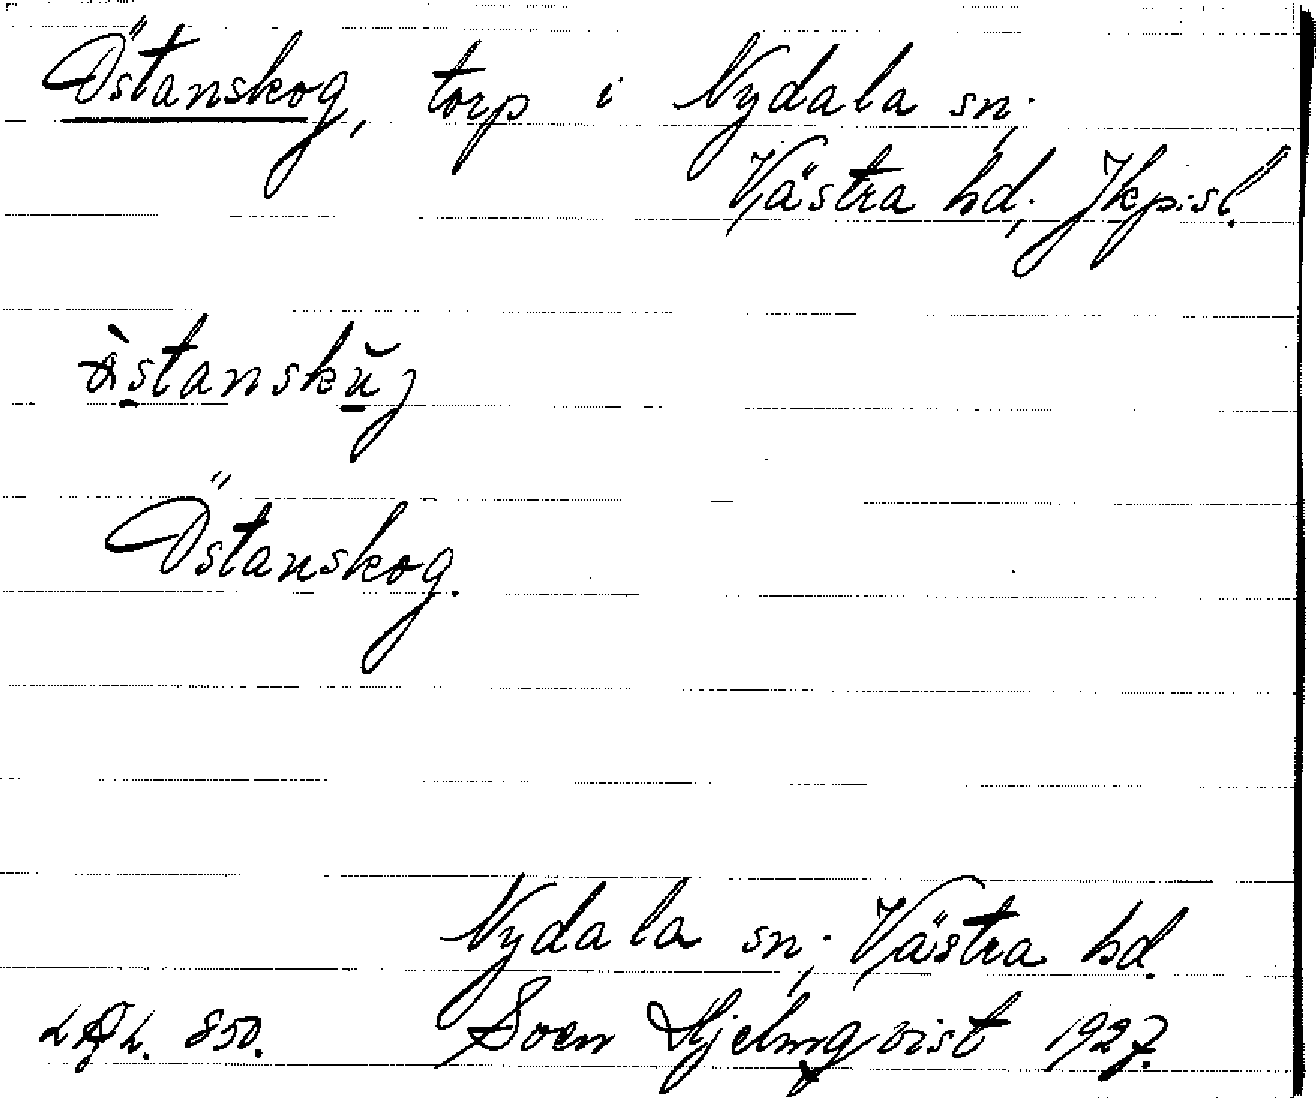 Östanskog, torp i Nydala sn;
Västra hd; Jkp:sl.
Östanskog.
Nydala sn; Västra hd.
850. Sven Hjelmqvist 1927.